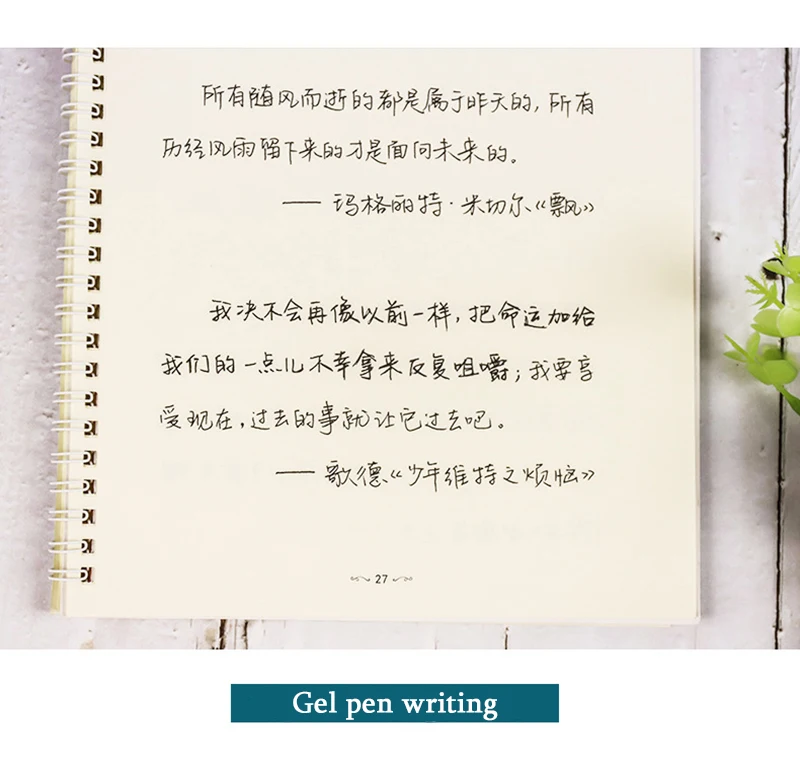 所有随风而逝的都是属于昨天的,所有
历经风雨留下来的才是面向未来的。
—— 玛格丽特·米切尔《飘》
我决不会再像以前一样,把命运加给
我们的一点儿不幸拿来反复咀嚼;我要享
受现在,过去的事就让它过去吧。
—— 歌德《少年维特之烦恼》
27
Gel pen writing